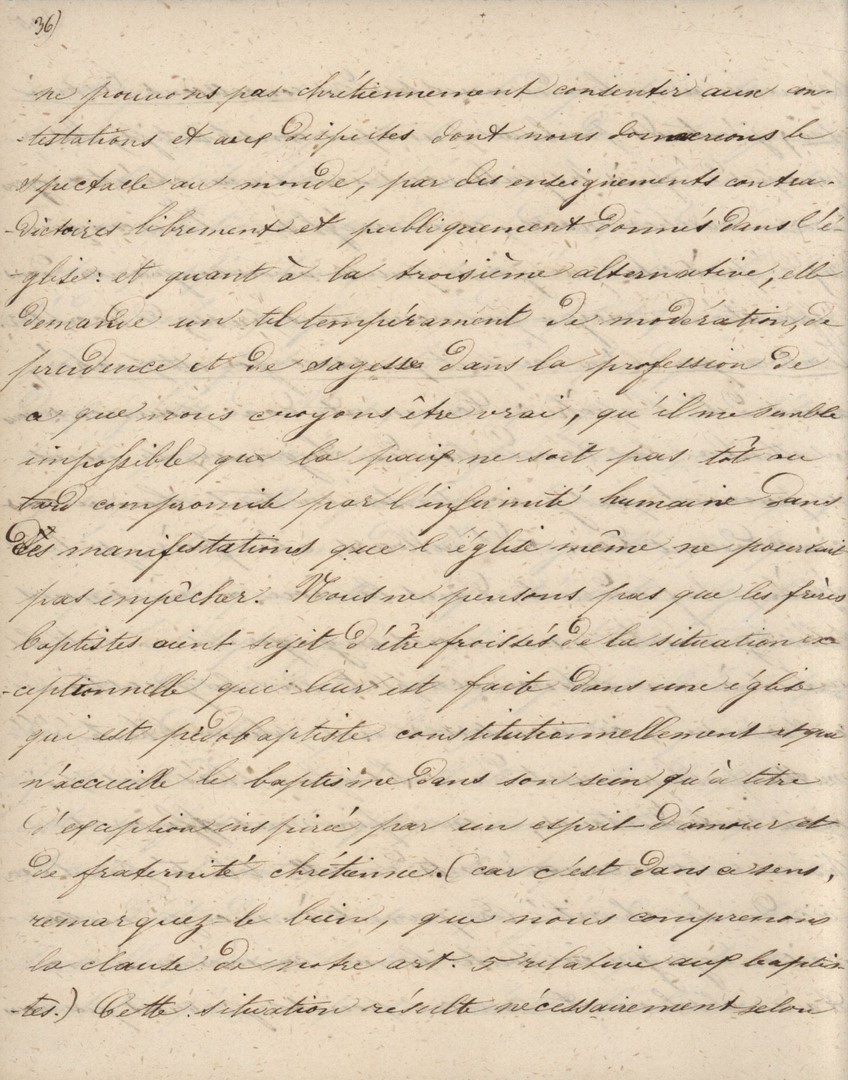 36)
ne pouvons pas chrétiennement consentir aux con-
-testations et aux disputes dont nous donnerions le
spectacle au monde, par des enseignements contra-
-dictoires librement et publiquement donnés dans l'é-
-glise: et quant à la troisième alternative, elle
demande un tel tempérament de modération, de
prudence et de sagesse dans la profession de
ce que nous croyons être vrai, qu'il me semble
impossible que la paix ne soit pas tôt ou
tard compromise par l'infirmité humaine dans
des manifestations que l'église même ne pourrait
pas empêcher. Nous ne pensons pas que les frères
baptistes aient sujet d'être froissés de la situation ex
-ceptionnelle qui leur est faite dans une église
qui est pédobaptiste constitutionnellement et qui
n'accueille le baptisme dans son sein qu'à titre
d'exception inspirée par un esprit d'amour et
de fraternité chrétienne. (car c'est dans ce sens,
remarquez-le bien, que nous comprenons
la clause de notre art. 5 relative aux baptis-
-tes.) Cette situation résulte nécessairement selon